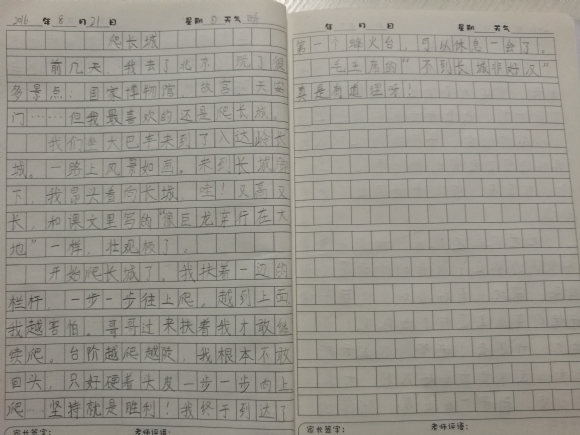 2016 年 8 月 21 日 星期 日 天气
爬长城
前几天,我去了北京,玩了很
多景点:国家博物馆、故宫、天安
门……但我最喜欢的还是爬长城。
我们坐大巴车来到了八达岭长
城。一路上风景如画。来到长城脚
下,我抬头看向长城,哇!又高又
长,和课文里写的“像巨龙穿行在大
地”一样,壮观极了。
开始爬长城了,我扶着一边的
栏杆,一步一步往上爬,越到上面
我越害怕。哥哥过来扶着我才敢继
续爬。台阶越爬越陡,我根本不敢
回头,只好硬着头皮一步一步向上
爬…坚持就是胜利!我终于到达了
家长签字: 老师评语:
年 月 日 星期 天气
第一个烽火台,可以休息一会了。
毛主席的“不到长城非好汉”
真是有道理呀!
家长签字: 老师评语: